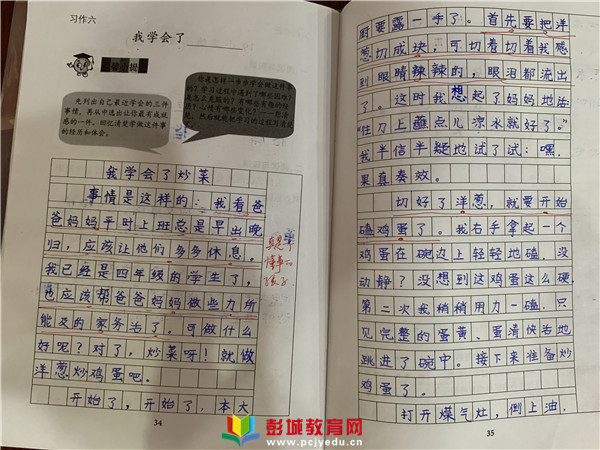 习作六
我学会了
先列出自己最近学会的三件
事情，再从中选出让你最有成就
感的一件。回忆清楚学做这件事
的经历和体会。
你是怎样一步步学会做这件事
的？学习过程中遇到了哪些困难？
我学会了炒菜
事情是这样的：我看爸
爸妈妈平时上班总是早出晚
归，应该让他们多多休息。
我已经是四年级的学生了，
也应该帮爸爸妈妈做些力所
能及的家务活了。可做什么
好呢？对了，炒菜呀！就做
洋葱炒鸡蛋吧。
开始了，开始了，本大
真是个
懂事的
孩子
34
厨要露一手了。首先要把洋
葱切成块，可切着切着我感
到眼睛辣辣的，眼泪都流出
了。这时我想起了妈妈地话
“往刀上蘸点儿凉水就好了。”
我半信半疑地试了试：嘿，
果真奏效。
切好了洋葱，就要开始
磕鸡蛋了。我右手拿起一个
鸡蛋在碗边上轻轻地磕，没
动静？没想到这鸡蛋这么硬。
第二次我稍稍用力一磕，只
见完整的蛋黄、蛋清快活地
跳进了碗中。接下来准备炒
鸡蛋了。
打开煤气灶，倒上油，
35
彭城教育网
www.pcjyedu.cn